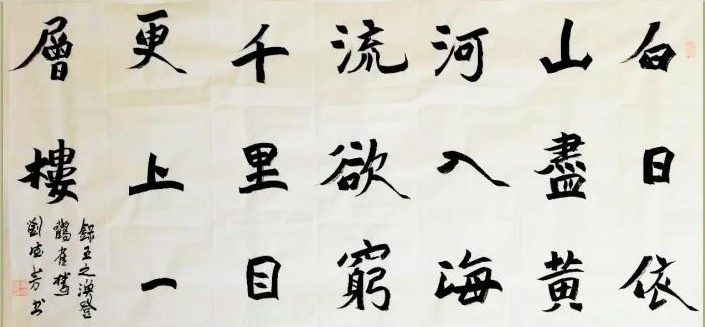 白日依
山盡黃
河入海
流欲窮
千里目
更上一
層樓
錄王之渙登
鸛雀樓
劉德芳书